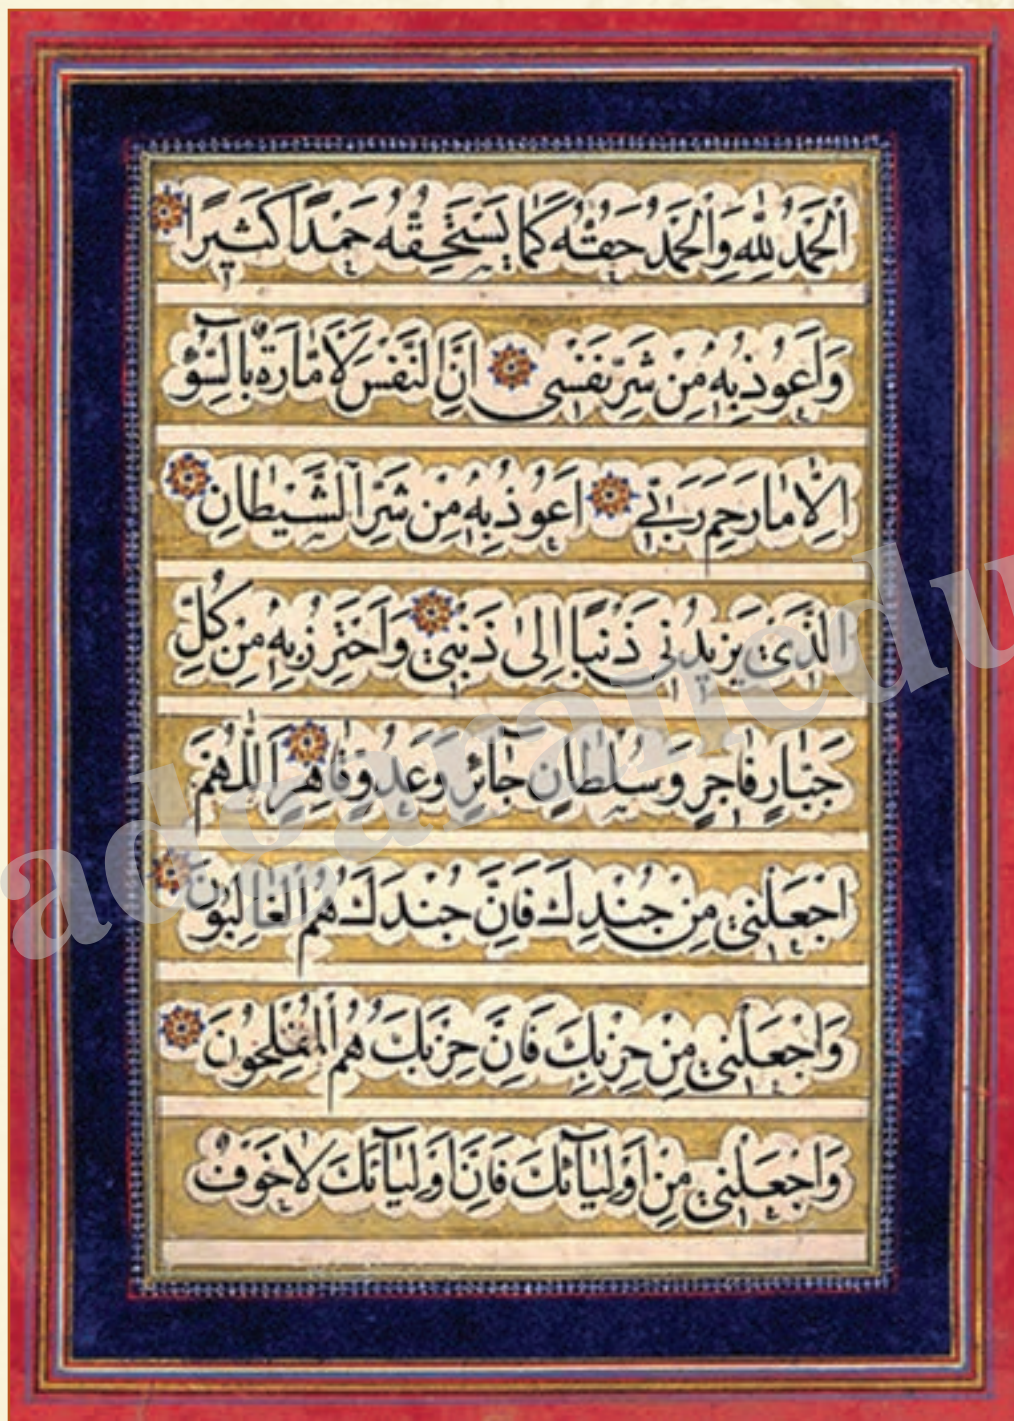 اَلْحَمْدُ لِلّٰهِ وَالْحَمْدُ حَقُّهُ كَمٰا يَسْتَحِقُّهُ حَمْدًا كَثيرًا
وَاَعُوذُ بِهِ مِنْ شَرِّ نَفْسى اِنَّ النَّفْسَ لَاَمّٰارَةٌ بِالسُّوۤءِ
اِلّٰا مٰا رَحِمَ رَبّى اَعُوذُ بِهِ مِنْ شَرِّ الشَّيْطٰانِ
الَّذى يَزيدُنى ذَنْبًا اِلىٰ ذَنْبى وَاَحْتَرِزُ بِهِ مِنْ كُلِّ
جَبّٰارٍ فٰاجِرٍ وَسُلْطٰانٍ جٰاۤئِرٍ وَعَدُوٍّ قٰاهِرٍ اَللّٰهُمَّ
اجْعَلْنى مِنْ جُنْدِكَ فَاِنَّ جُنْدَكَ هُمُ الْغٰالِبُونَ
وَاجْعَلْنى مِنْ حِزْبِكَ فَاِنَّ حِزْبَكَ هُمُ الْمُفْلِحُونَ
وَاجْعَلْنى مِنْ اَوْلِيٰاۤئِكَ فَاِنَّ اَوْلِيٰاۤئَكَ لٰا خَوْفٌ